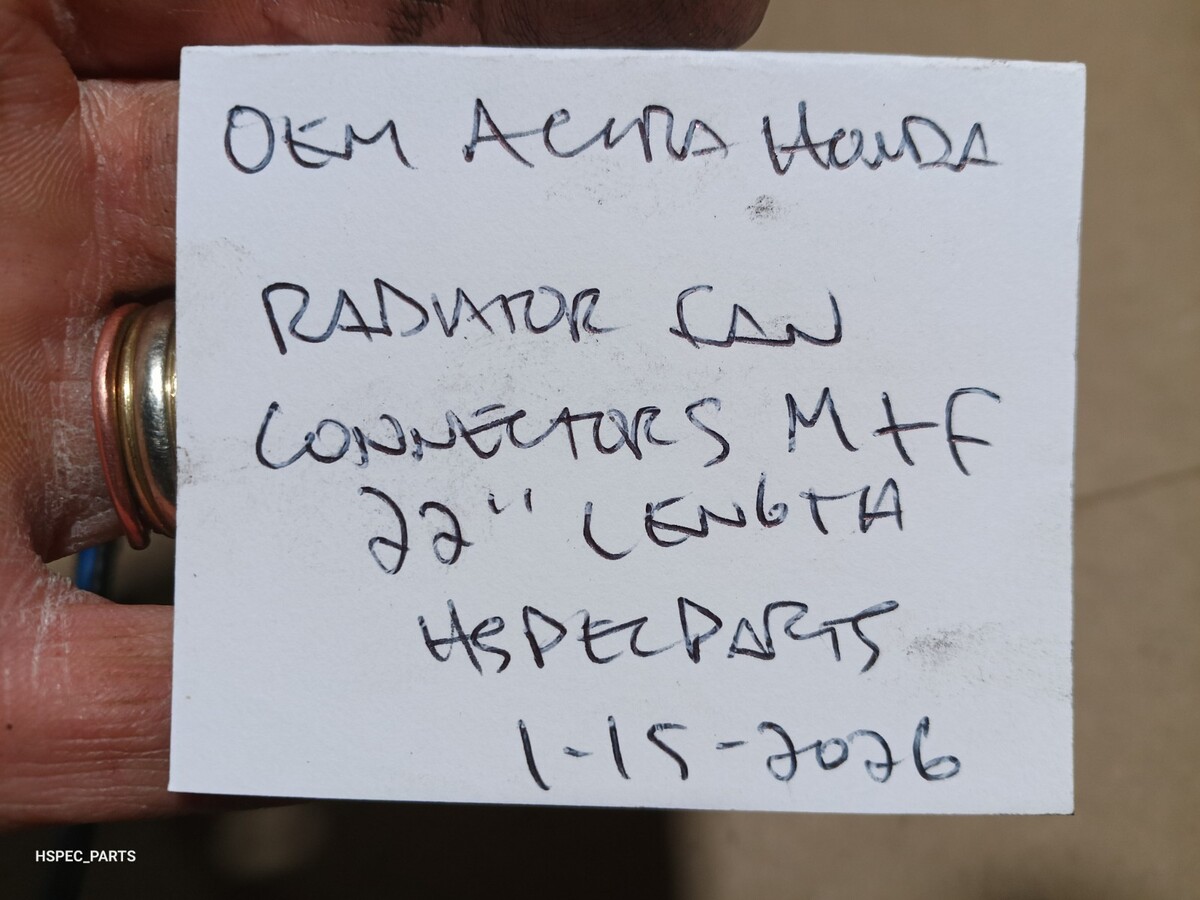 OEM ACURA HONDA
RADIATOR FAN
CONNECTORS M+F
22" LENGTH
HSPECPARTS
1-15-2026
HSPEC_PARTS